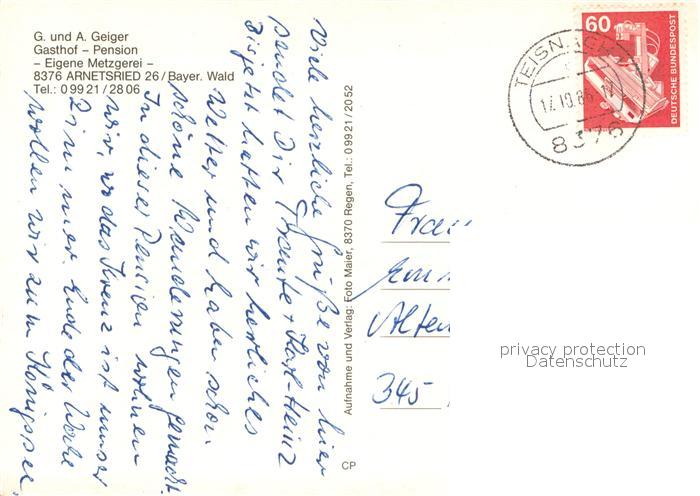 G. und A. Geiger
Gasthof – Pension
– Eigene Metzgerei –
8376 ARNETSRIED 26 / Bayer. Wald
Tel.: 0 99 21 / 28 06
Viele herzliche Grüße von hier
sendet Dir Traute + Karl-Heinz
Bis jetzt hatten wir herrliches
Wetter und haben schon
schöne Wanderungen gemacht.
In dieser Pension wohnen
wir, wo das Kreuz ist unser
Zimmer. Ende der Woche
wollen wir zum Königssee.
Aufnahme und Verlag: Foto Maier, 8370 Regen, Tel.: 0 99 21 / 20 52
CP
60
DEUTSCHE BUNDESPOST
TEISNACH
17.10.86
8376
Frau
Alten
345
privacy protection
Datenschutz